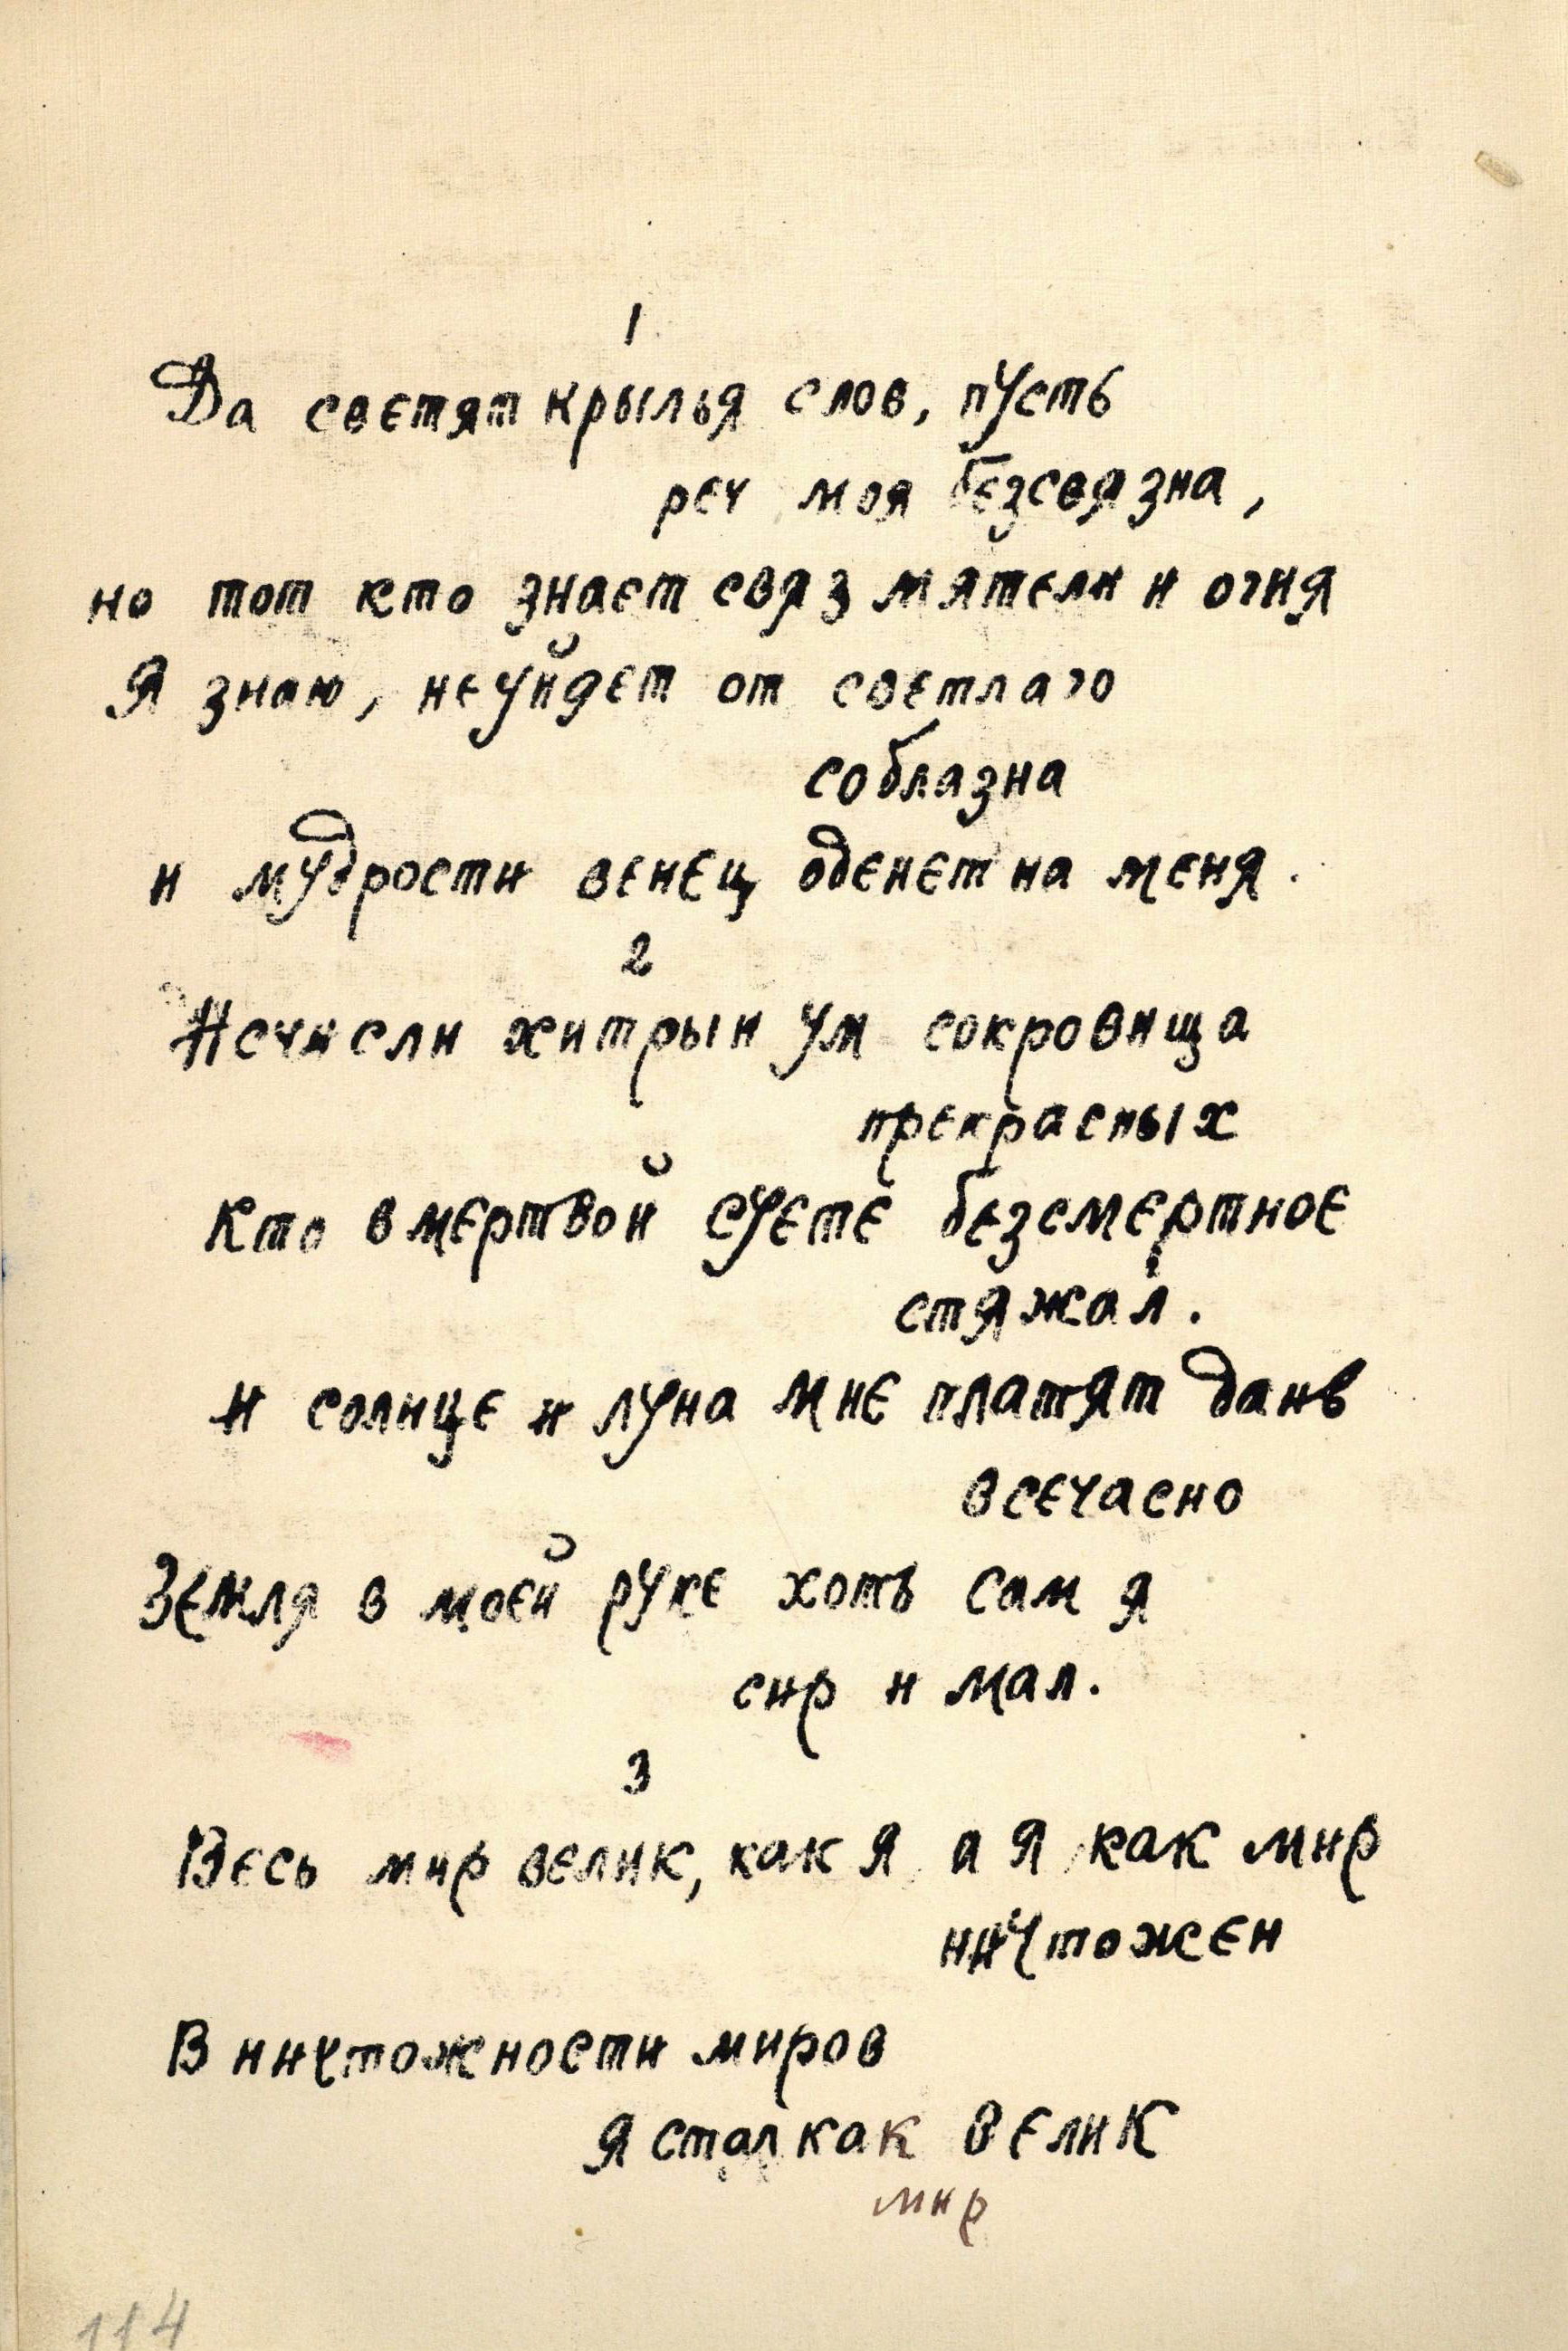 1
Да светят крылья слов, пусть
реч моя безсвязна,
но тот кто знает связ мятели и огня
Я знаю, не уйдет от светлаго
соблазна
и мудрости венец оденет на меня.
2
Исчисли хитрыи ум сокровища
прекрасных
Кто в мертвой суете безсмертное
стяжал.
и солнце и луна мне платят дань
всечасно
Земля в моей руке хоть сам я
сир и мал.
3
Весь мир велик, как я а я как мир
ничтожен
В ничтожности миров
я стал как велик
мир
114